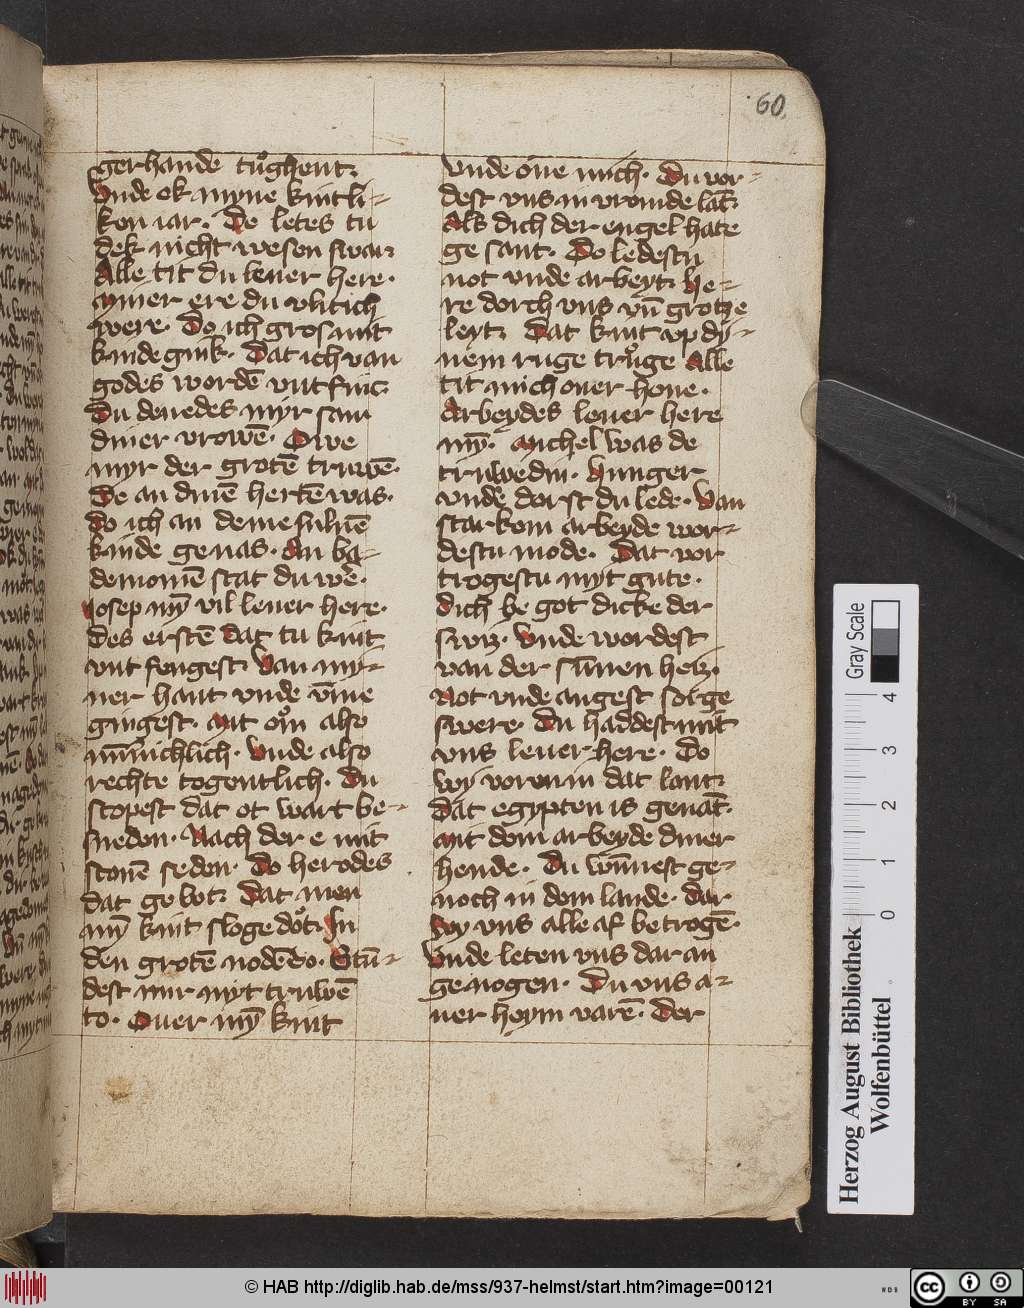 60
gerhande tůghent
Vnde ek myne kintli-
ken iar. De letes tu
dek nicht wesen swar
Alle tit du leuer here.
myner ere du vlitich
were. Do ich gros mit
kinde gink. Dat ich van
godes wordē vntfinc
Du denedes myr sam
diner vrowē. Owe
myr der grotē truwē.
De an dinē hertē was.
do ich an deme suluē
kinde genas. An ba-
demomē stat du wē.
Iosep mȳ vil leuer here.
Des erstē dat tu kint
vnt fengest Van my-
ner hant vnde v̄me
gingest. Mit om̊ also
mīnichlich. Vnde also
rechte togentlich. Du
scopest dat ot wart be-
sneden. Nach der e mit
stenē seden. Do herodes
dat gebot Dat men
mȳ kint sloge dot̊ In
den grotē nodē do. Stū-
dest mir myt truwē
to. Ouer mȳ kint
vnde one mich. Du vor-
dest vns in vromde lāt.
Als dich der engel hate
ge sant. Do ledestu
not vnde arbeyt he-
re dorch vns vn̄ grothe
leyt Dat kint vp dy-
nem ruge trůge Alle
tit mich ouer houe.
Arbeydes leuer here
mȳ. Michel was de
truwe din. Hunger
vnde dorst du lede. Van
starkem arbeyde wor-
destu mode. Dat vor
trogestu myt gute.
Dich be got dicke der
swiz. Vnde wordest
van der sūnen heiz.
Not vnde angest sorge
swere. Du haddest mit
vns leuer here. Do
wy voren in dat lant
dat egypten is genāt.
Mit dem arbeyde diner
hende. Du wūnest ge-
noch in dem lande. dar
Wy vns alle af betrogē.
Vnde leten vns dar an
genogen. Du vns a-
uer heym varē. Der
Herzog August Bibliothek
Wolfenbüttel
0 1 2 3 4
Gray Scale
© HAB http://diglib.hab.de/mss/937-helmst/start.htm?image=00121
WDB
cc
BY SA